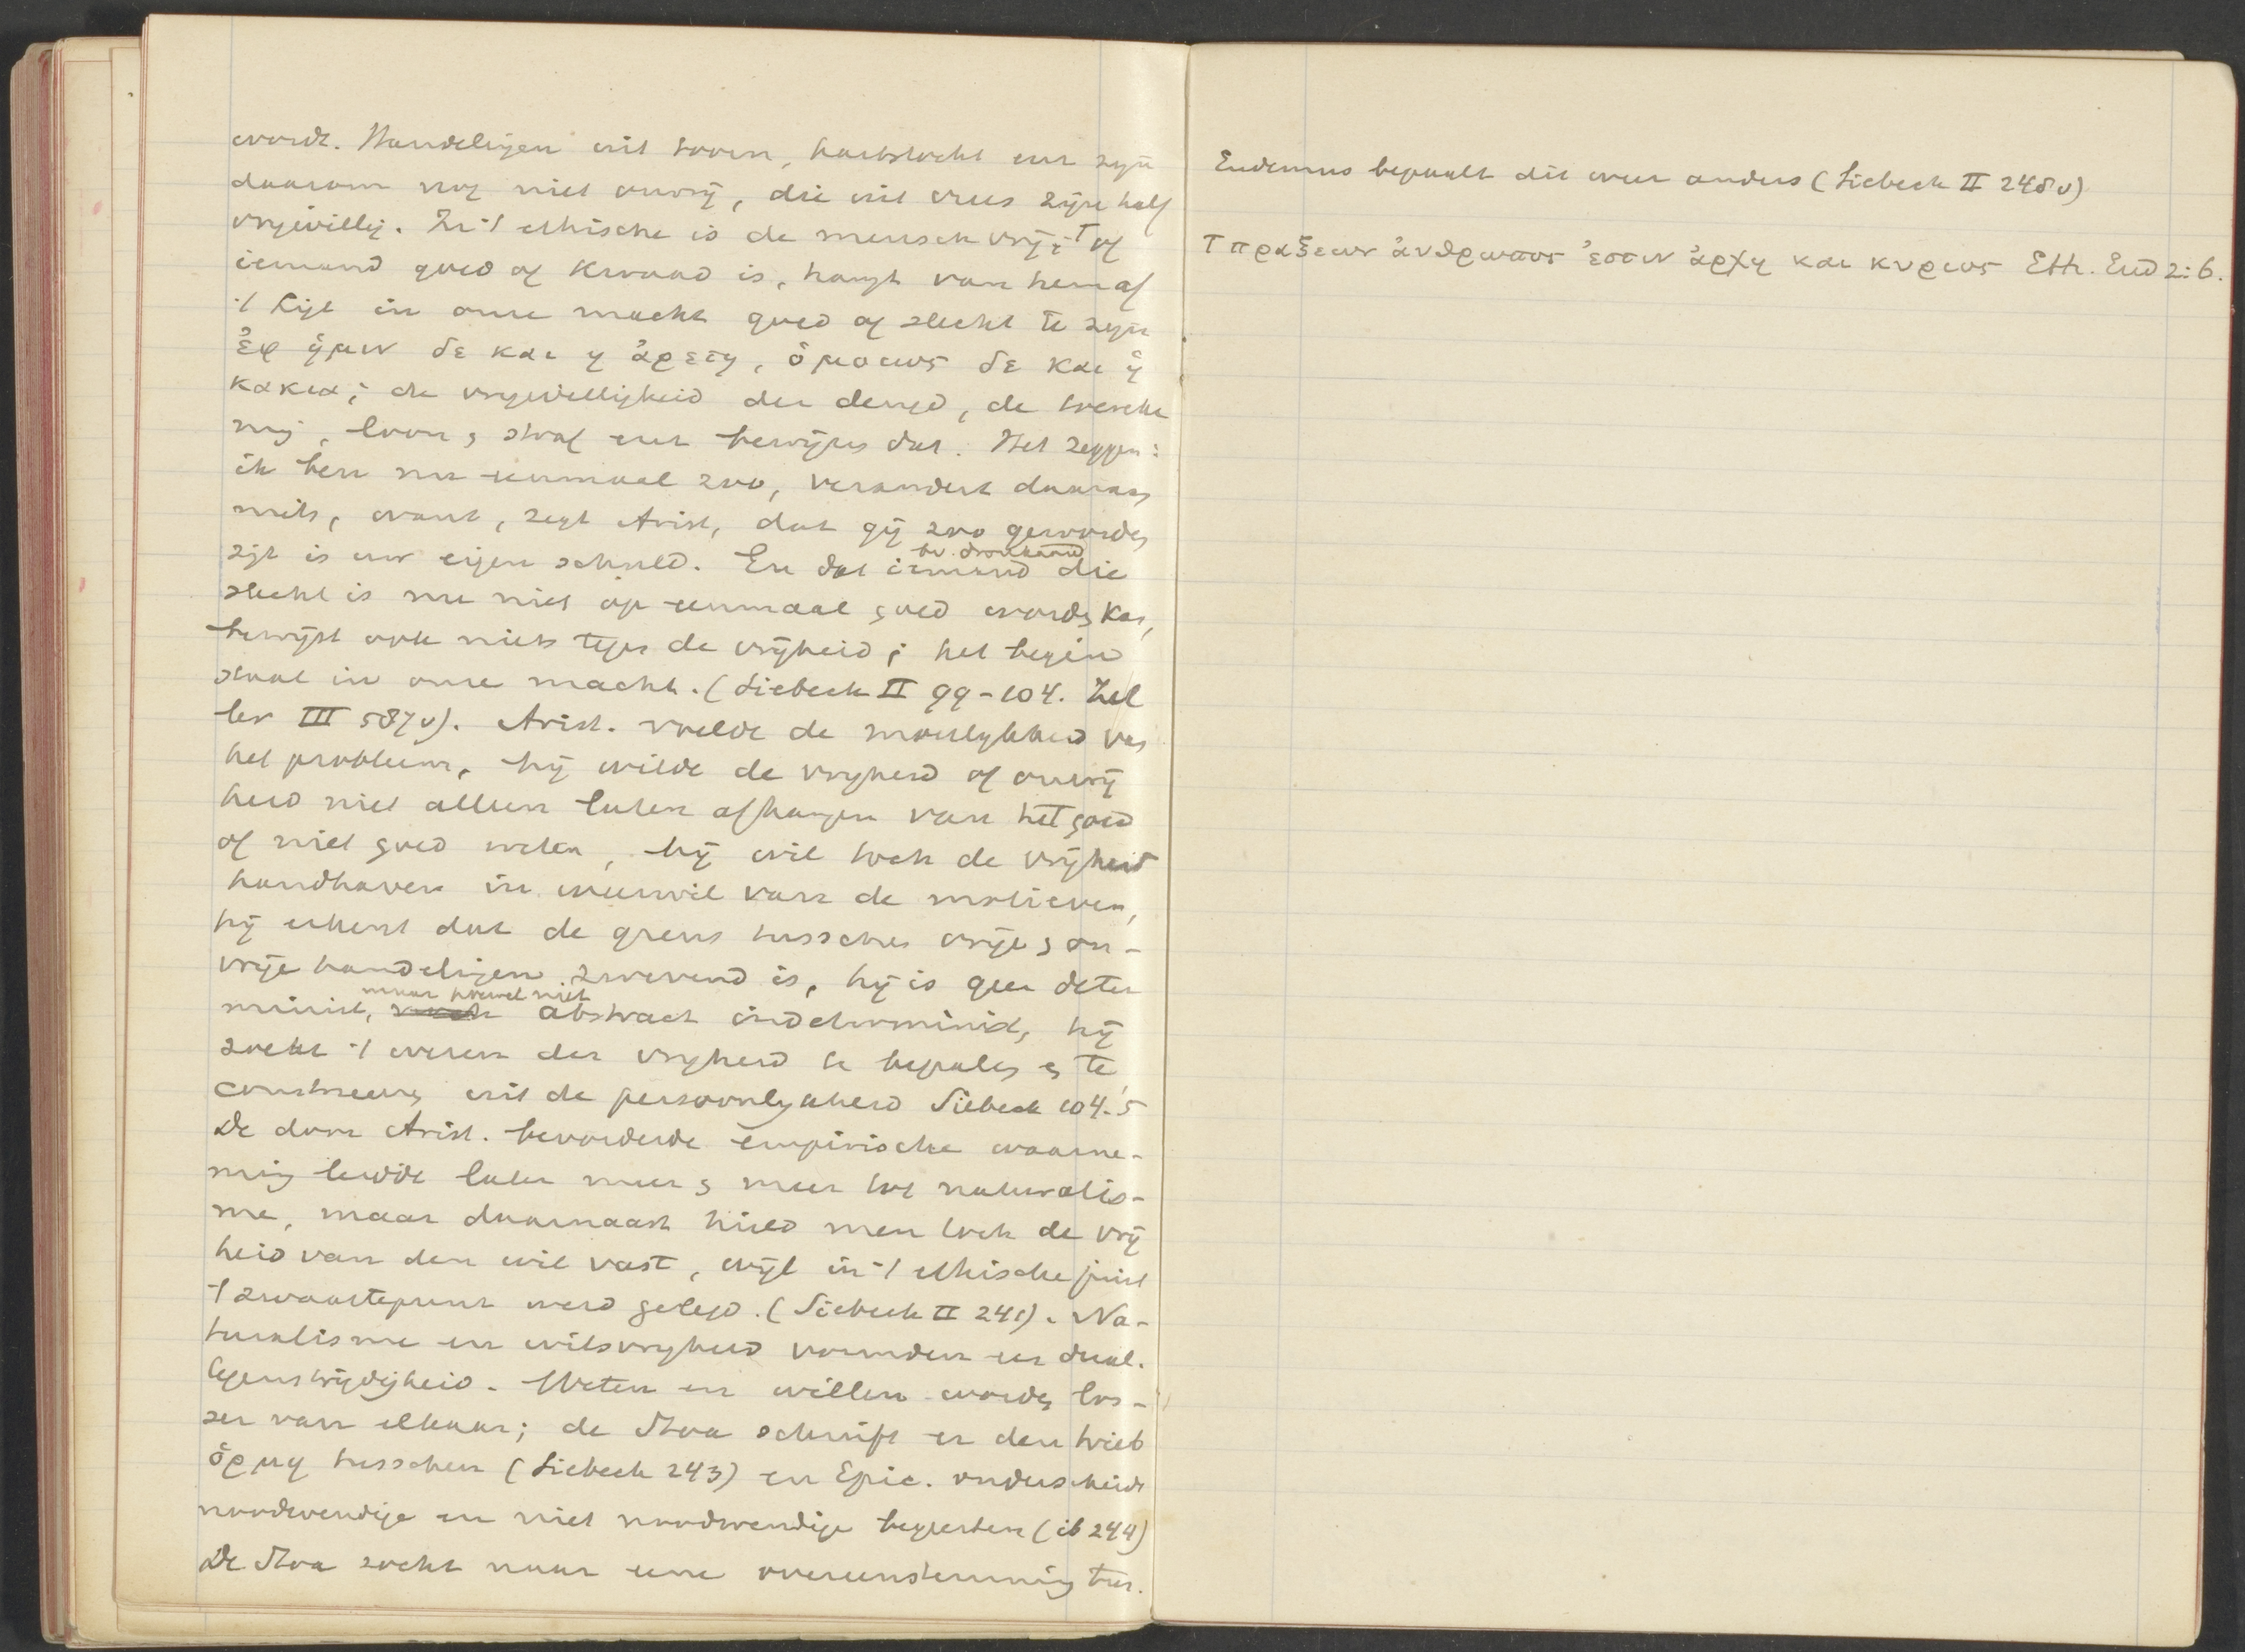 wordt. Handelingen uit toorn, hartstocht enz zijn
daarom nog niet onvrij, die uit vrees zijn half
vrijwillig. In 't ethische is de mensch vrij; ꚍ of
iemand goed of kwaad is, hangt van hem af
't ligt in onze macht goed of slecht te zijn
ἐφ ἡμιν δε και η ἀρετη, ὁμοιως δε και ἡ
κακια; de vrijwilligheid der deugd, de toereke
ning, loon, straf enz bewijzen dat. Het zeggen:
ik ben nu eenmaal zoo, verandert daaraan
niets, want, zegt Arist, dat gij zoo geworden
zijt is uw eigen schuld. En dat iemand bv. dronkaard die
slecht is nu niet op eenmaal goed worden kan,
bewijst ook niets tegen de vrijheid; het begin
staat in onze macht. (Siebeck II 99-104. Zel
ler III 587v). Arist. voelde de moeilijkheid van
het probleem, hij wilde de vrijheid of onvrij
heid niet alleen laten afhangen van het goed
of niet goed weten, hij wil toch de vrijheid
handhaven in weerwil van de motieven,
hij erkent dat de grens tusschen vrije en on-
vrije handelingen zwevend is, hij is geen deter
minist, maar hoewel niet abstract indeterminist, hij
zoekt 't wezen der vrijheid te bepalen en te
construeeren uit de persoonlijkheid Siebeck 104.5
De door Arist. bevorderde empirische waarne-
ming leidde later meer en meer tot naturalis-
me, maar daarnaast hield men toch de vrij
heid van den wil vast, wijl in 't ethische juist
't zwaartepunt werd gelegd. (Siebeck II 241). Na-
turalisme en wilsvrijheid vormden een dual.
tegenstrijdigheid. Weten en willen worden los-
ser van elkaar; de Stoa schuift er den trieb
ὁρμη tusschen (Siebeck 243) en Epic. onderscheidt
noodwendige en niet noodwendige begeerten (ib 244)
De Stoa zocht naar eene overeenstemming tus.
Eudemus bepaalt dit weer anders (Siebeck II 248v)
ꚍ πραξεων ἀνθρωπος ἐστιν ἀρχη και κυριος Eth. Eud 2:6.